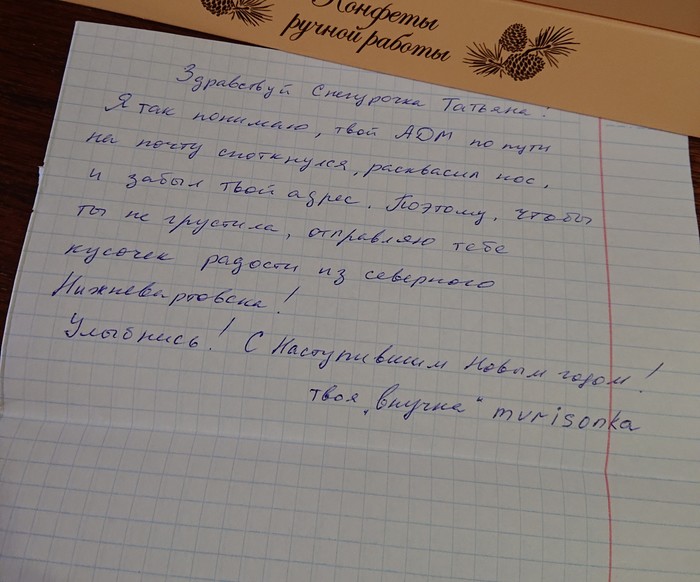 Конфеты
ручной работы
Здравствуй Снегурочка Татьяна!
Я так понимаю, твой АДМ по пути
на почту споткнулся, расквасил нос,
и забыл твой адрес. Поэтому, чтобы
ты не грустила, отправляю тебе
кусочек радости из северного
Нижневартовска!
Улыбнись! С Наступившим Новым годом!
твоя „внучка“ murisonka